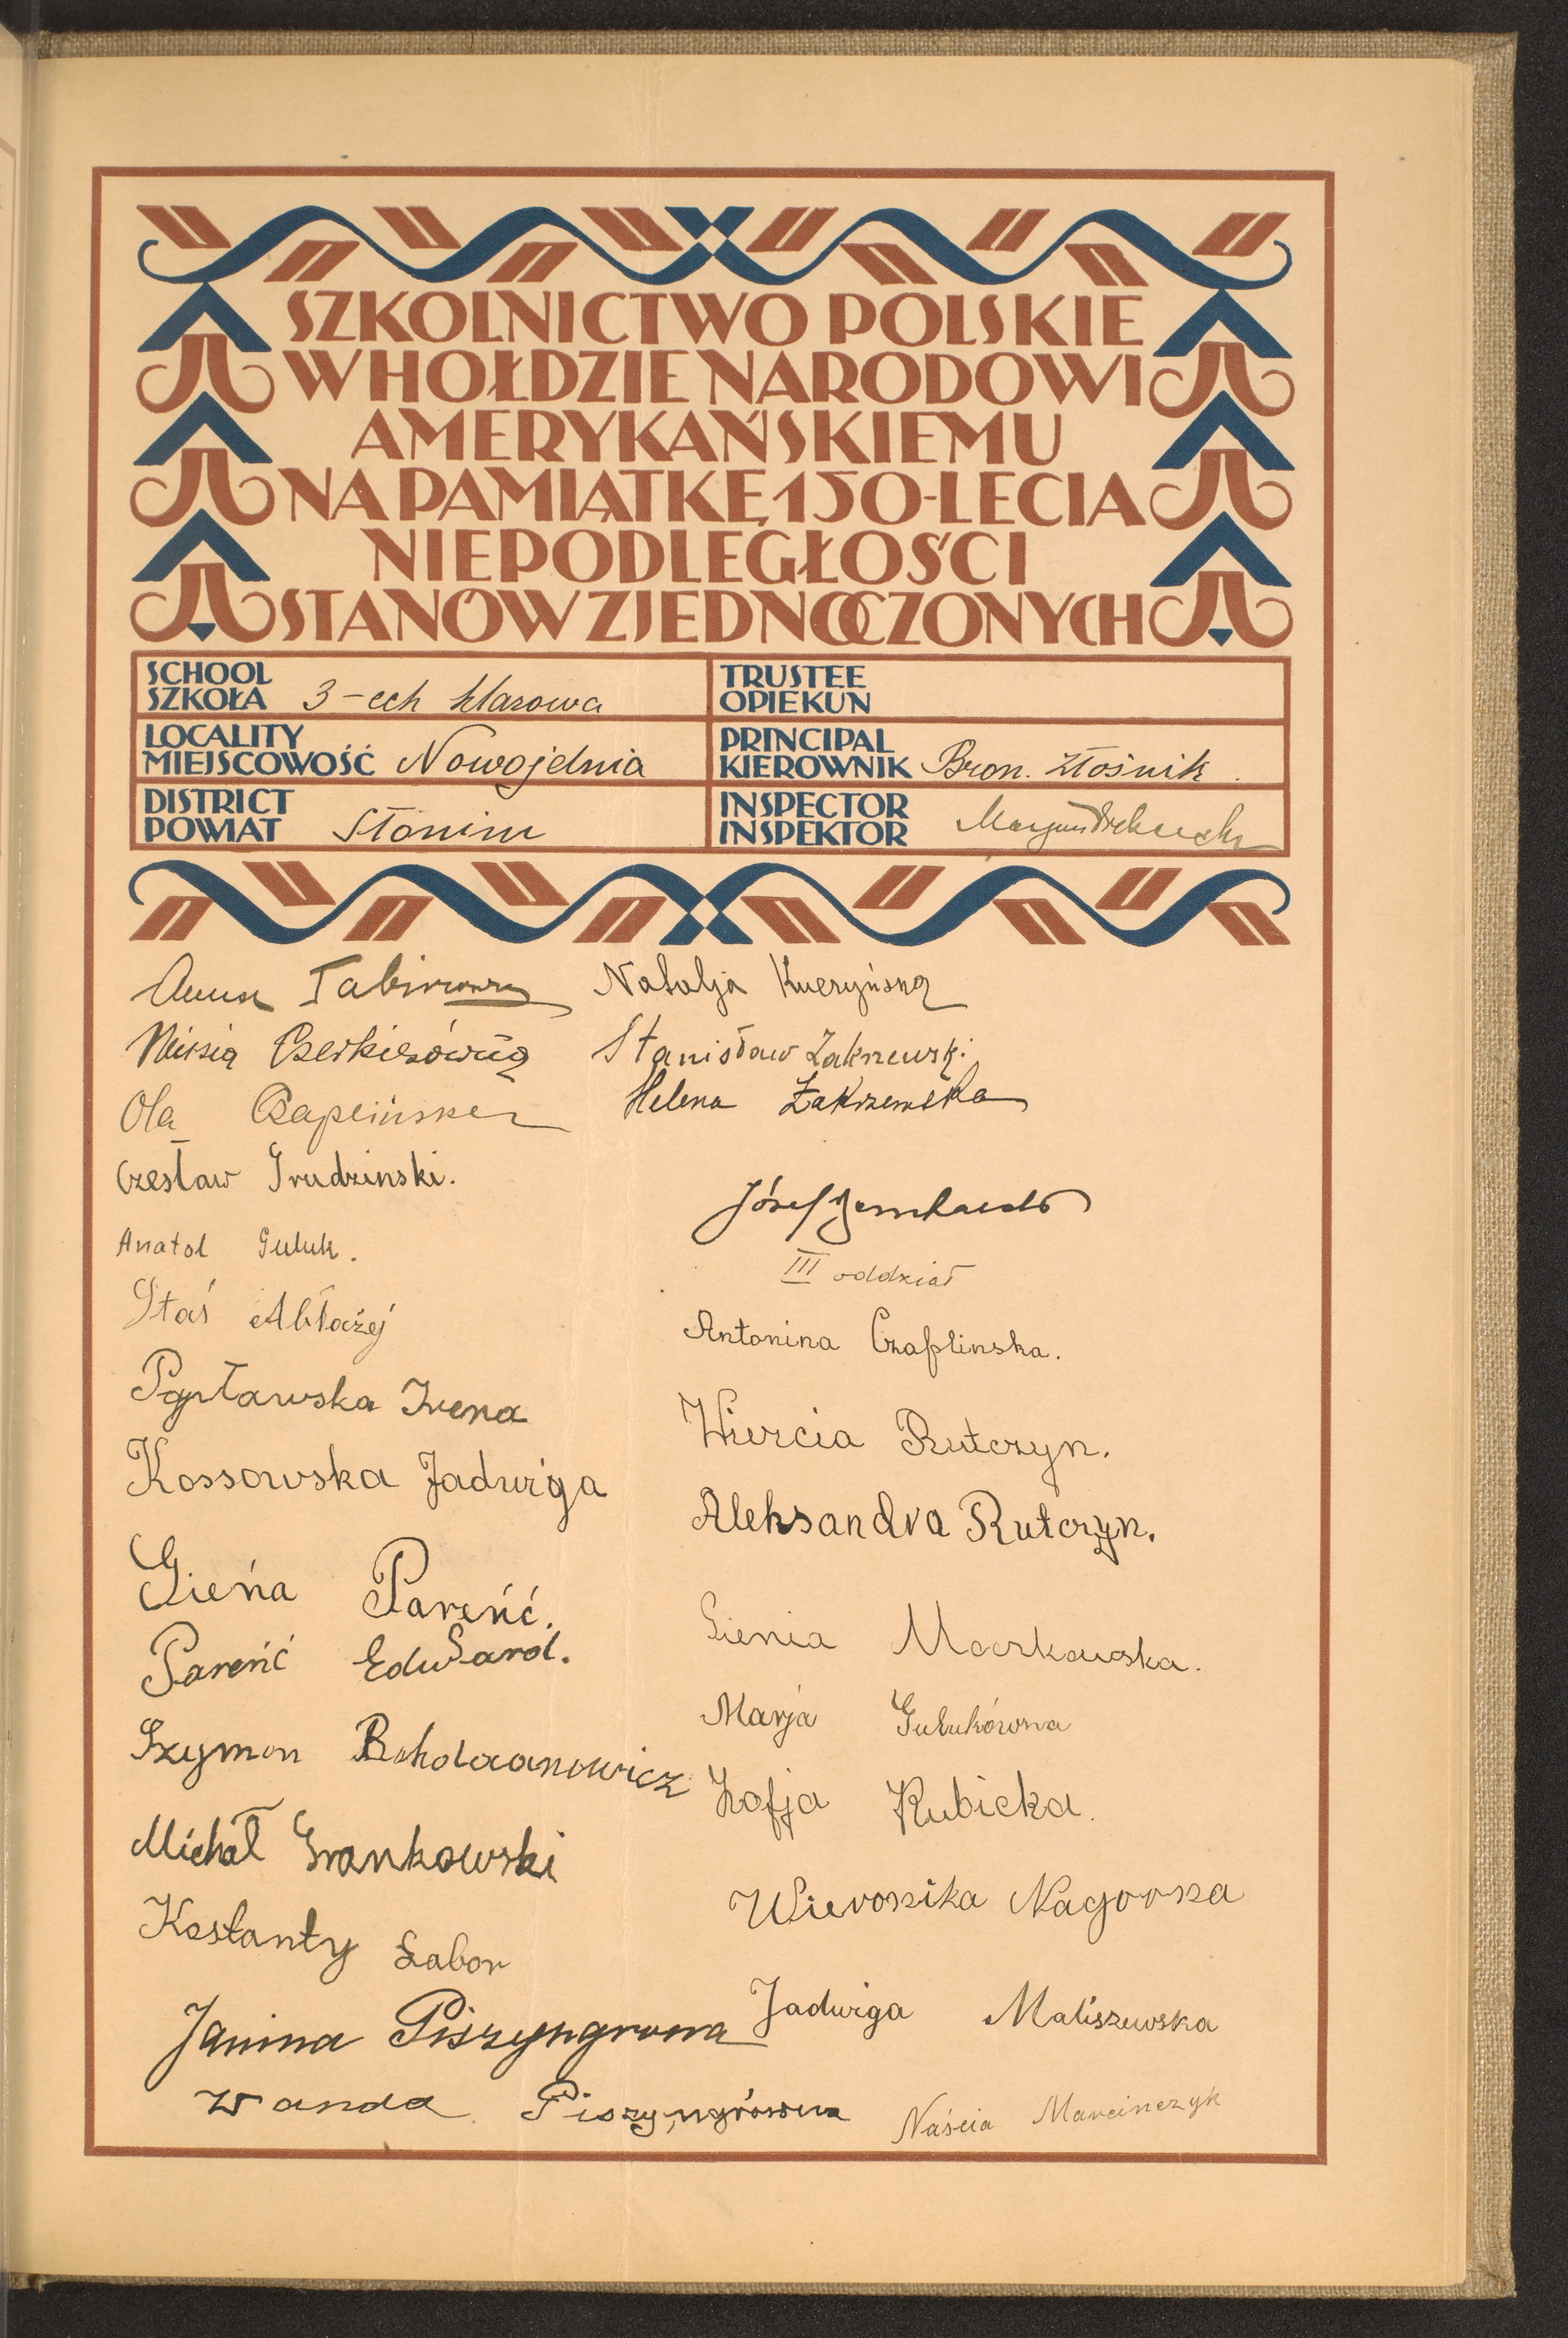 SZKOLNICTWO POLSKIE
W HOŁDZIE NARODOWI
AMERYKAŃSKIEMU
NA PAMIĄTKĘ 150-LECIA
NIEPODLEGŁOŚCI
STANÓW ZJEDNOCZONYCH
SCHOOL
SZKOŁA 3-ech klasowa
LOCALITY
MIEJSCOWOŚĆ Nowojelnia
DISTRICT
POWIAT Słonim
TRUSTEE
OPIEKUN
PRINCIPAL
KIEROWNIK Bron. Złośnik.
INSPECTOR
INSPEKTOR
Anna
Ola
Czesław Grudzinski.
Anatol Guluk.
Staś Abłażej
Irena
Kossowska Jadwiga
Gieńa Pareńć.
Pareńć Edward.
Szymon
Michał Grankowski
Kostanty Łabor
Janina
Wanda Piszyngrówna
Natalja
Stanisław Zakrzewski.
Helena Zakrzewska
Józef
III oddział
Antonina Czaplinska.
Wiercia Rutczyn.
Aleksandra Rutczyn.
Gienia Maczkowska.
Marja Gulukówna
Zofja Kubicka.
Wieronika Nagorna
Jadwiga Maliszewska
Naścia Marcinczyk